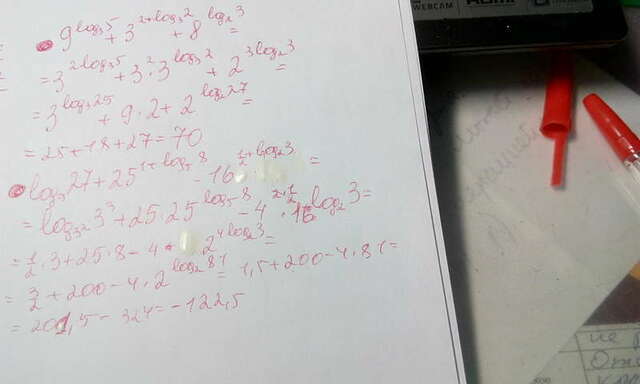 9^{log_3 5} + 3^{2+log_3 2} + 8^{log_2 3} =
= 3^{2log_3 5} + 3^2·3^{log_3 2} + 2^{3log_2 3} =
= 3^{log_3 25} + 9·2 + 2^{log_2 27} =
= 25+18+27=70
log_9 27 + 25^{1+log_5 8} - 16^{1/2+log_2 3} =
= log_{3^2} 3^3 + 25·25^{log_5 8} - 4^{2·1/2}·16^{log_2 3} =
= 1/2·3+25·8-4· 2^{4log_2 3} =
= 3/2+200-4·2^{log_2 81} = 1,5+200-4·81=
= 201,5-324=-122,5
WEBCAM
HDMI
не